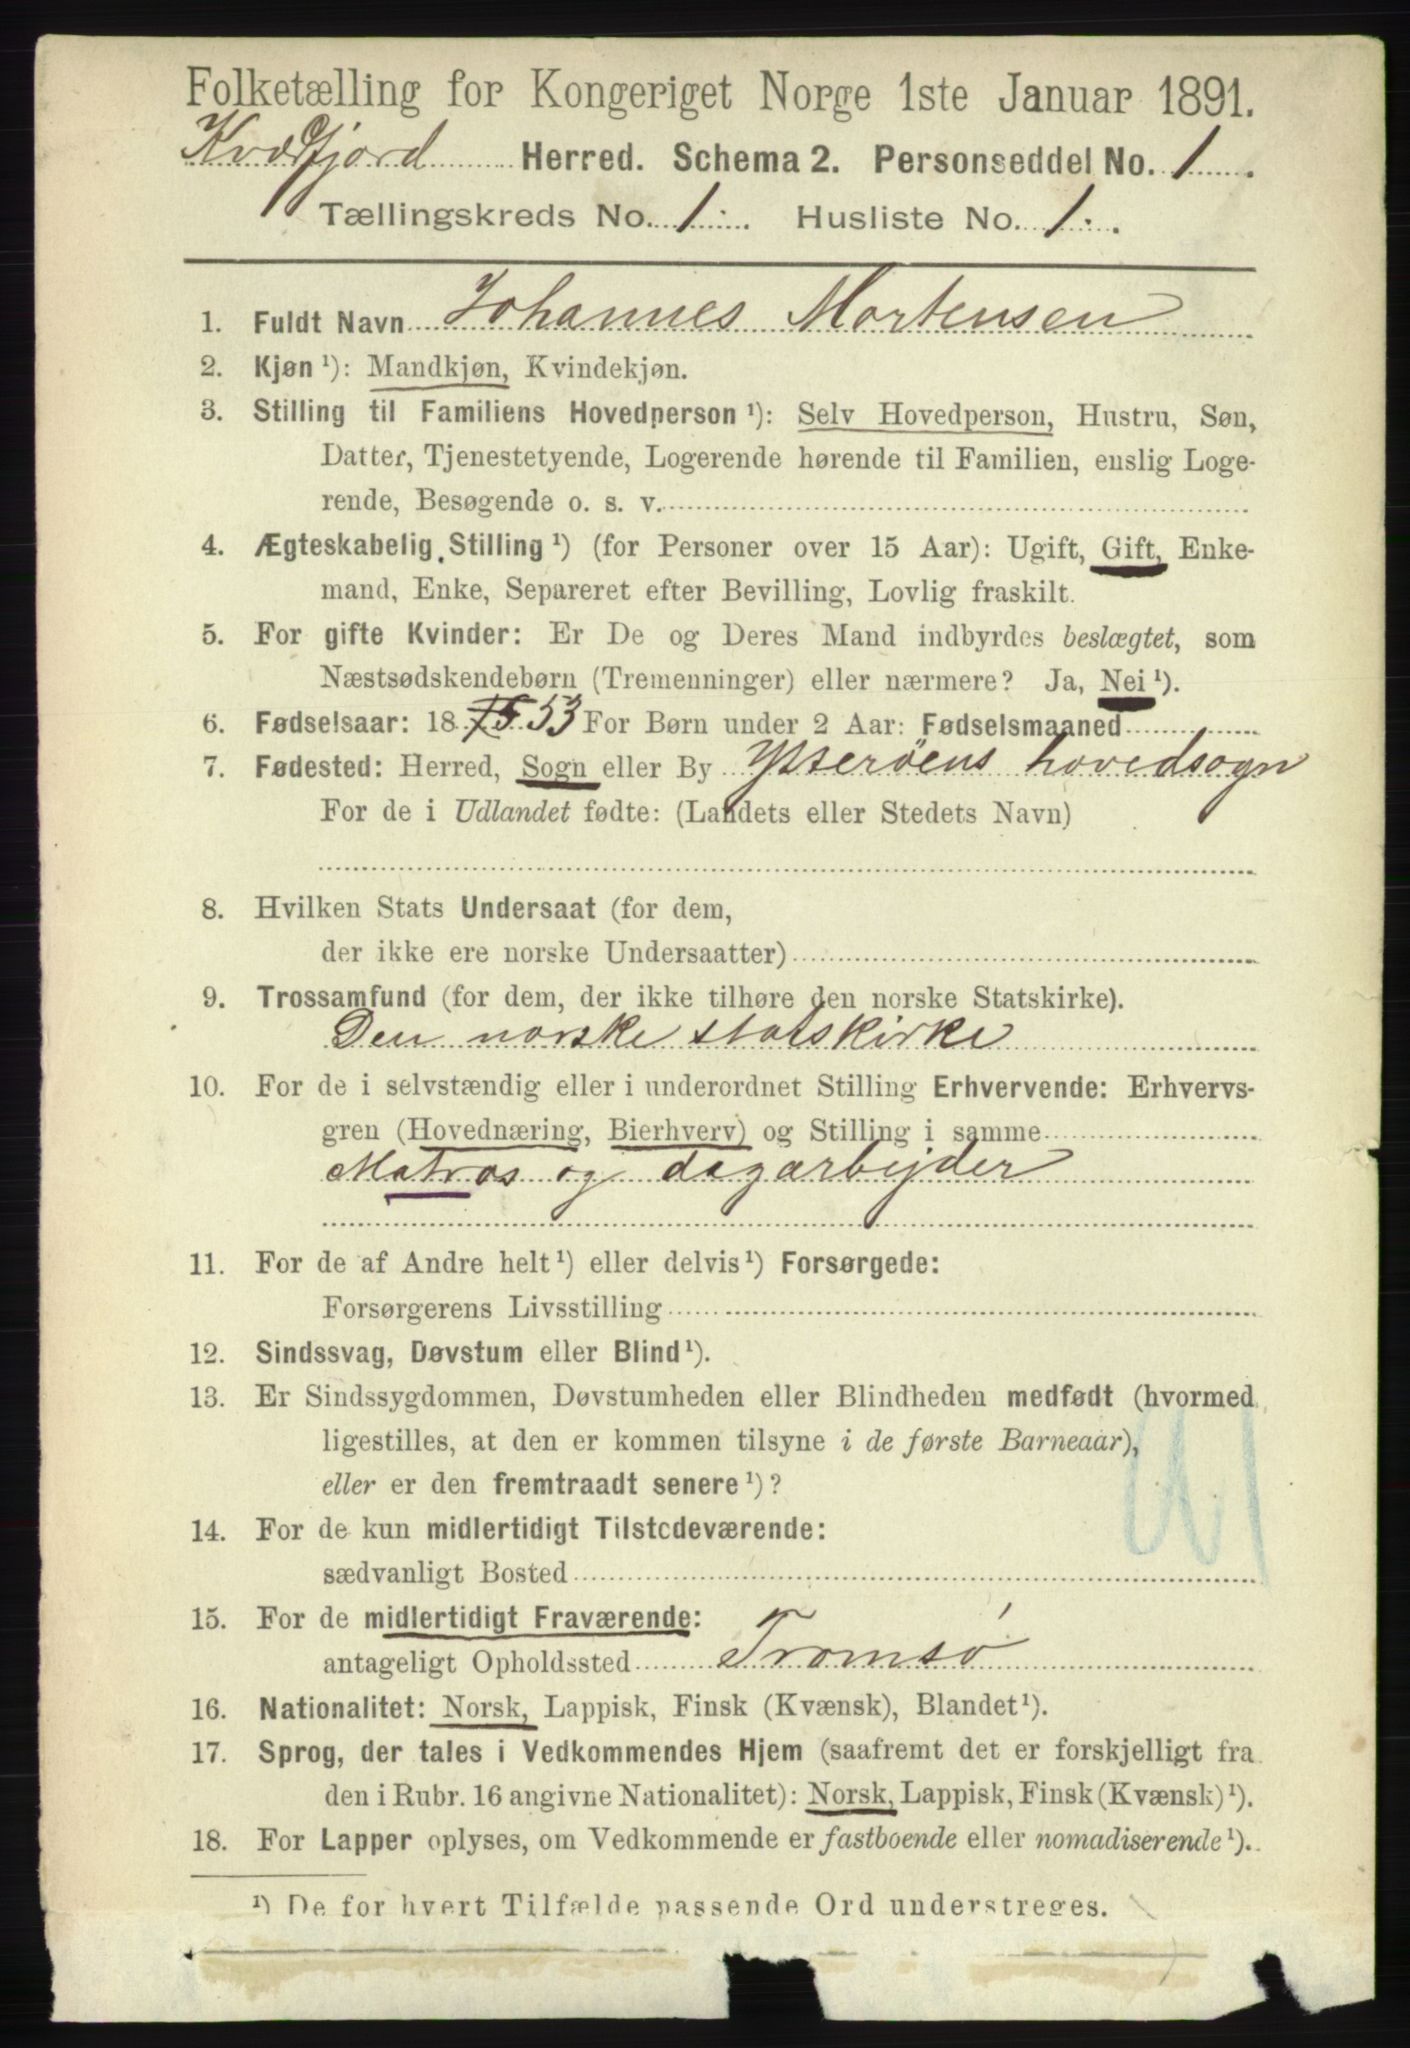 Folketælling for Kongeriget Norge 1ste Januar 1891.
Kvædfjord Herred. Schema 2. Personseddel No. 1.
Tællingskreds No. 1. Husliste No. 1.
1. Fuldt Navn Johannes Mortensen
2. Kjøn ¹): Mandkjøn, Kvindekjøn.
3. Stilling til Familiens Hovedperson ¹): Selv Hovedperson, Hustru, Søn,
Datter, Tjenestetyende, Logerende hørende til Familien, enslig Loge-
rende, Besøgende o. s. v.
4. Ægteskabelig Stilling ¹) (for Personer over 15 Aar): Ugift, Gift, Enke-
mand, Enke, Separeret efter Bevilling, Lovlig fraskilt.
5. For gifte Kvinder: Er De og Deres Mand indbyrdes beslægtet, som
Næstsødskendebørn (Tremenninger) eller nærmere? Ja, Nei ¹).
6. Fødselsaar: 18 53 For Børn under 2 Aar: Fødselsmaaned
7. Fødested: Herred, Sogn eller By Ytterøens hovedsogn
For de i Udlandet fødte: (Landets eller Stedets Navn)
8. Hvilken Stats Undersaat (for dem,
der ikke ere norske Undersaatter)
9. Trossamfund (for dem, der ikke tilhøre den norske Statskirke).
Den norske statskirke
10. For de i selvstændig eller i underordnet Stilling Erhvervende: Erhvervs-
gren (Hovednæring, Bierhverv) og Stilling i samme
Matros og dagarbejder
11. For de af Andre helt ¹) eller delvis ¹) Forsørgede:
Forsørgerens Livsstilling
12. Sindssvag, Døvstum eller Blind ¹).
13. Er Sindssygdommen, Døvstumheden eller Blindheden medfødt (hvormed
ligestilles, at den er kommen tilsyne i de første Barneaar),
eller er den fremtraadt senere ¹)?
14. For de kun midlertidigt Tilstedeværende:
sædvanligt Bosted
15. For de midlertidigt Fraværende:
antageligt Opholdssted Tromsø
16. Nationalitet: Norsk, Lappisk, Finsk (Kvænsk), Blandet ¹).
17. Sprog, der tales i Vedkommendes Hjem (saafremt det er forskjelligt fra
den i Rubr. 16 angivne Nationalitet): Norsk, Lappisk, Finsk (Kvænsk) ¹).
18. For Lapper oplyses, om Vedkommende er fastboende eller nomadiserende ¹).
¹) De for hvert Tilfælde passende Ord understreges.